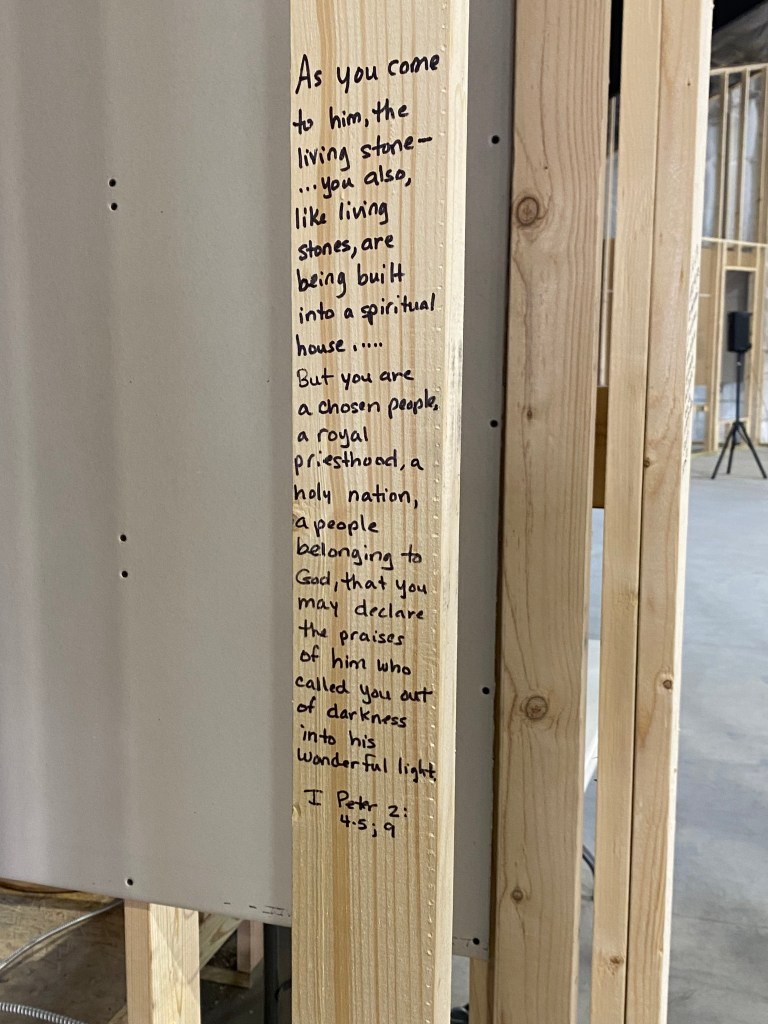 As you come
to him, the
living stone—
...you also,
like living
stones, are
being built
into a spiritual
house.....
But you are
a chosen people,
a royal
priesthood, a
holy nation,
a people
belonging to
God, that you
may declare
the praises
of him who
called you out
of darkness
into his
wonderful light.
I Peter 2:
4-5; 9